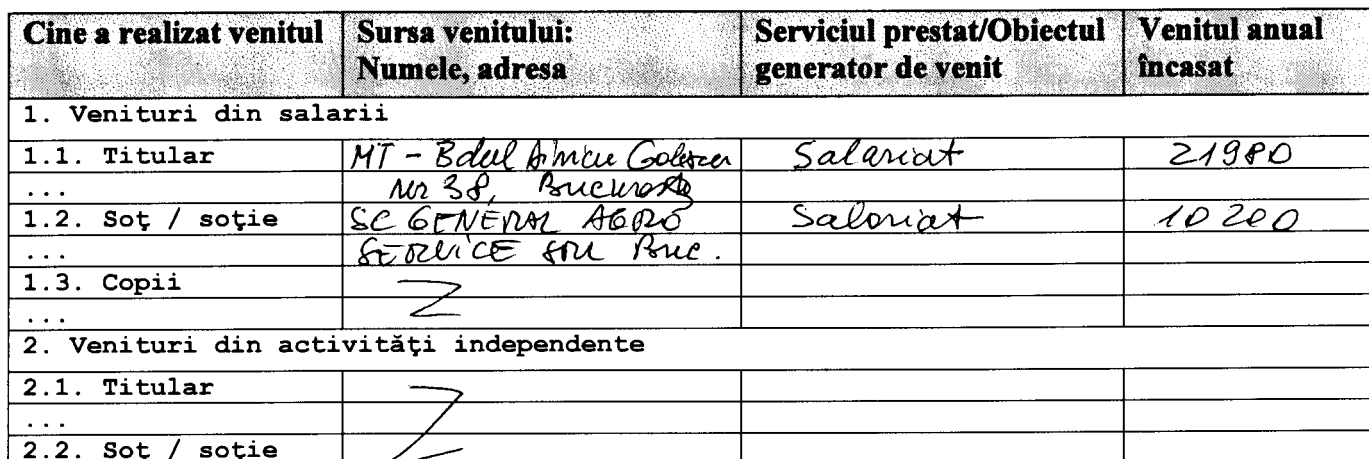 Cine a realizat venitul Sursa venitului: Numele, adresa Serviciul prestat/Obiectul generator de venit Venitul anual încasat
1. Venituri din salarii
1.1. Titular MT - Bdul Dinicu Golescu Salariat 21980
... Nr 38, București
1.2. Soţ / soţie SC GENERAL AGRO Salariat 10200
... SERVICE SRL Buc.
1.3. Copii
...
2. Venituri din activităţi independente
2.1. Titular
...
2.2. Soţ / soţie